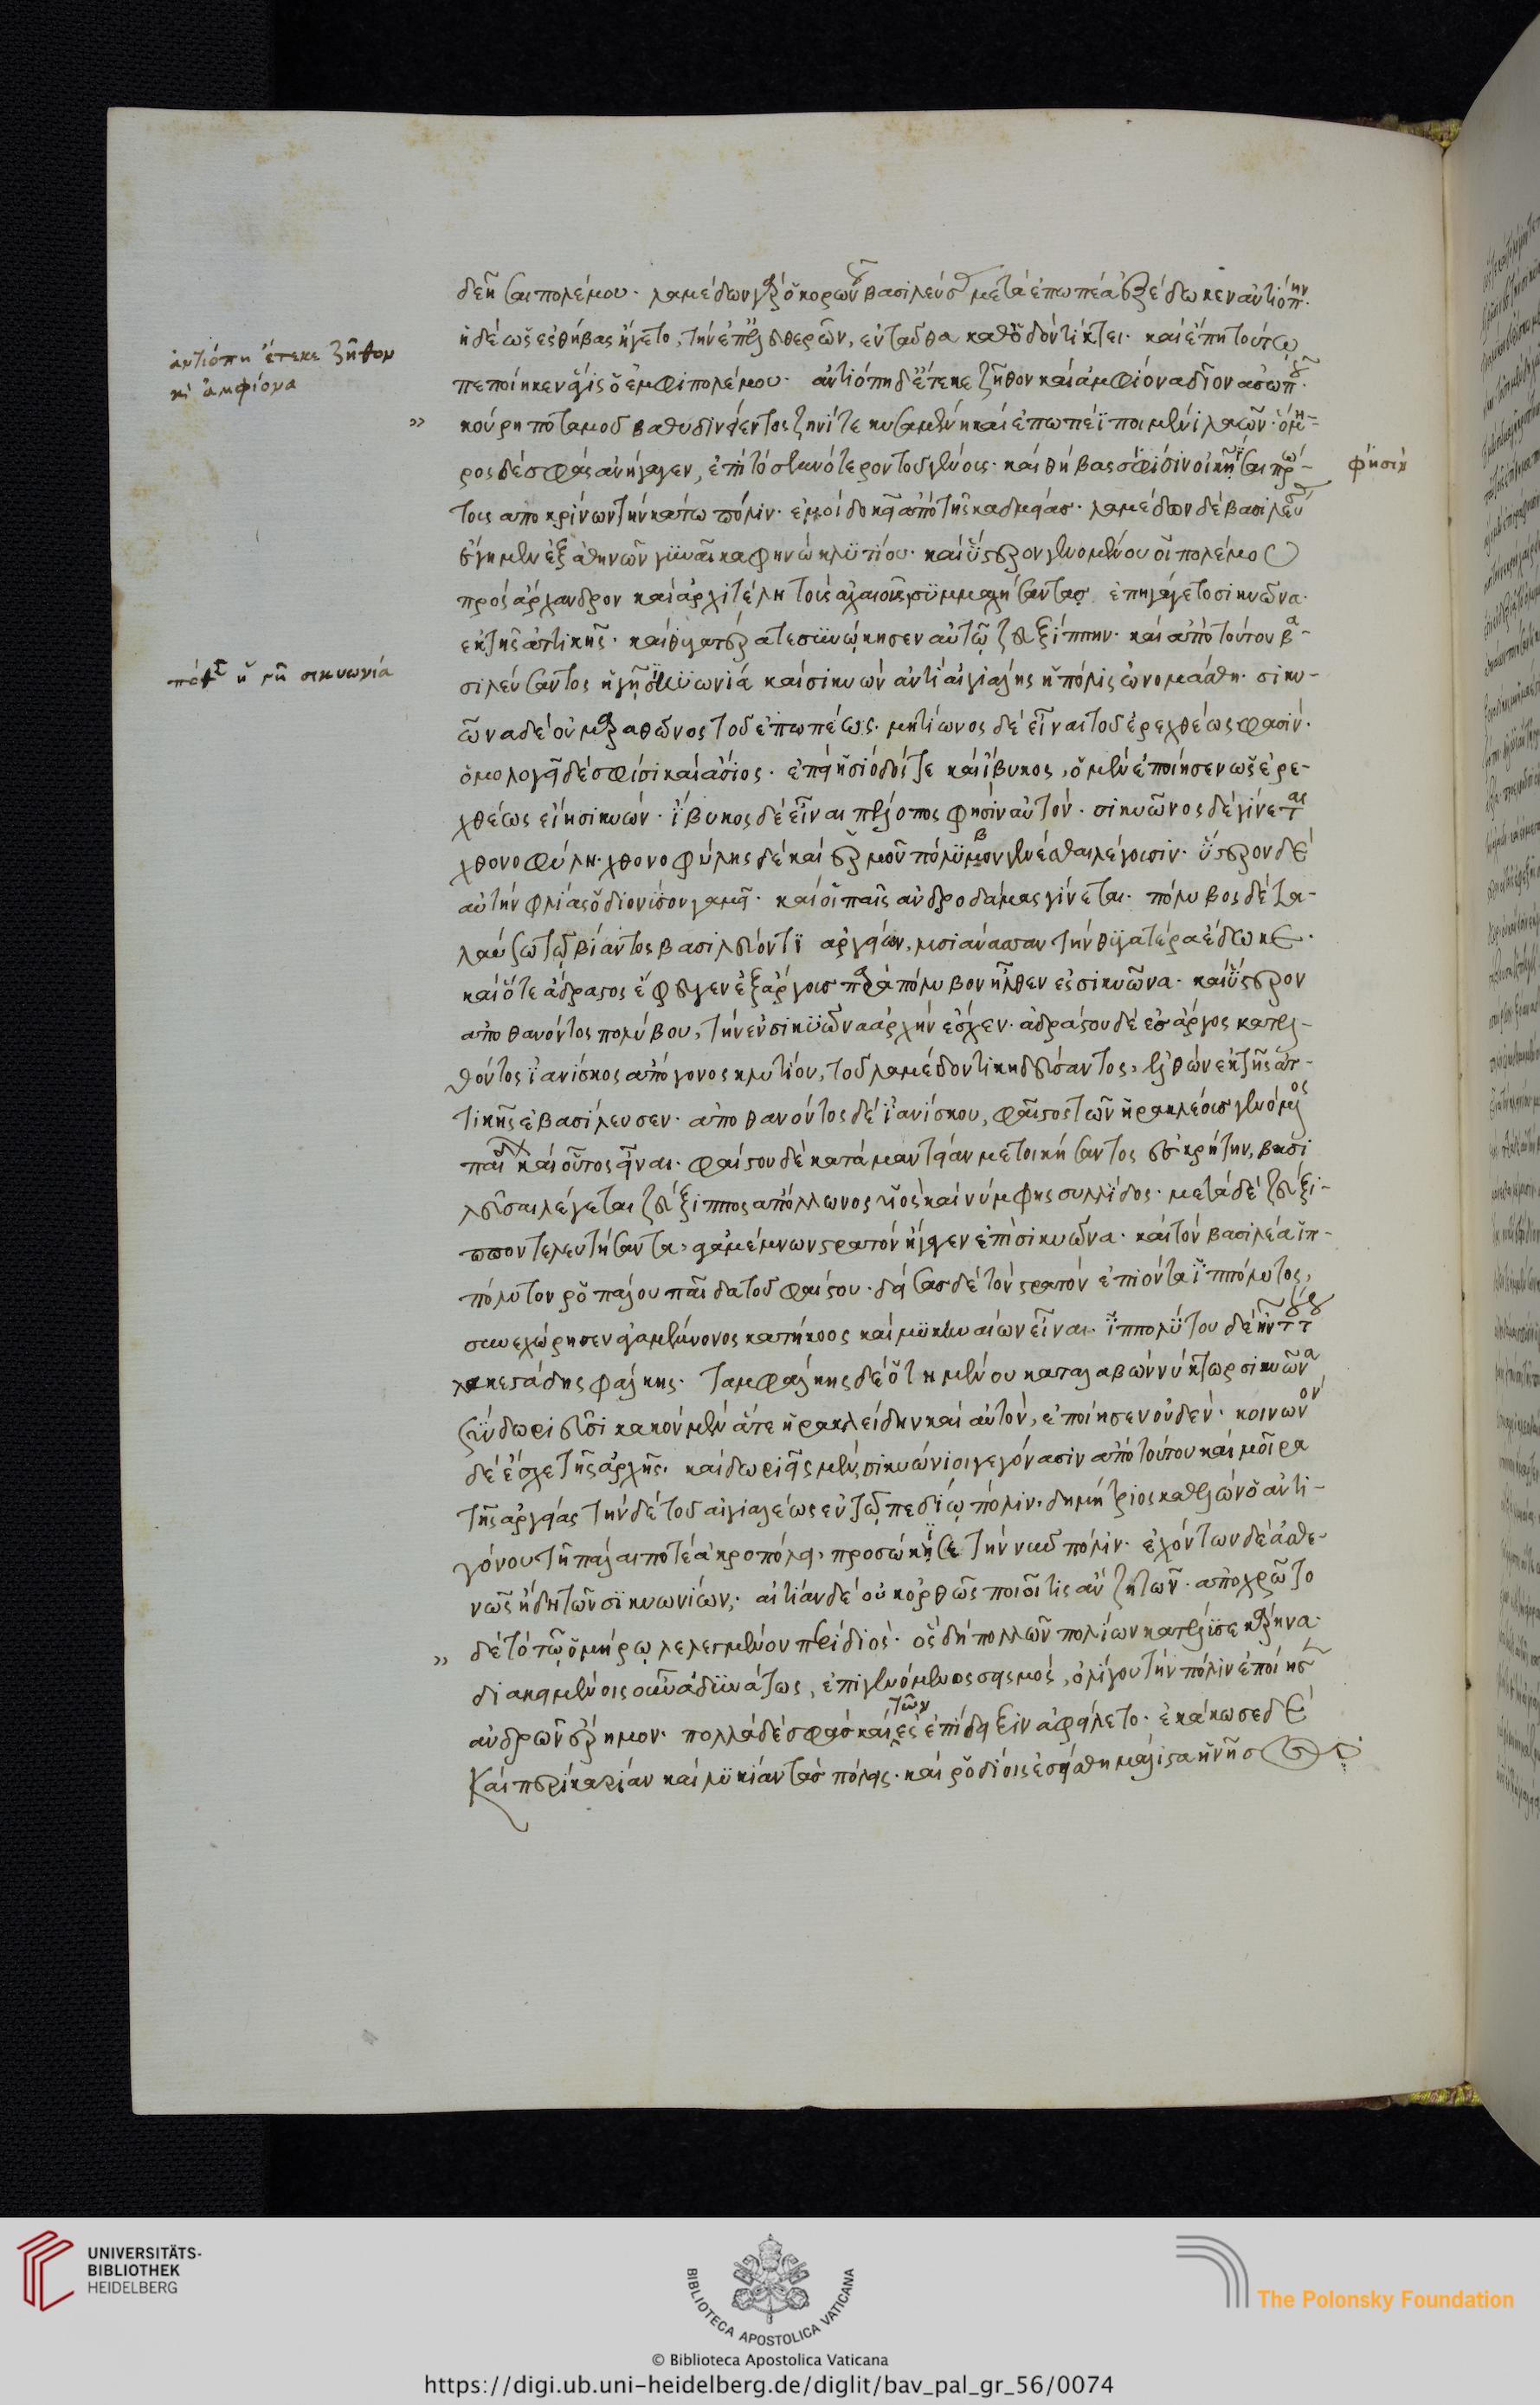 δεῆσαι πολέμου. λαμέδων γὰρ ὁ κορώνου βασιλεύσας μετὰ ἐπωπέα ἐξέδωκεν ἀντιόπην.
ἡ δὲ ὡς ἐς θήβας ἤγετο, τὴν ἐπ' ἐλευθερῶν, ἐνταῦθα καθ' ὁδὸν τίκτει. καὶ ἔπη τούτω
ἀντιόπη ἔτεκε ζῆθον
κὶ ἀμφίονα
πεποίηκεν ἄσις ὁ ἀμφιπολέμου. ἀντιόπη δ' ἔτεκε ζῆθον καὶ ἀμφίονα δῖον ἀσωποῦ.
κούρη ποταμοῦ βαθυδινήεντος ζηνί τε κυσαμένη καὶ ἐπωπέϊ ποιμένι λαῶν. ὅμη-
ρος δέ σφας ἀνήγαγεν, ἐπὶ τὸ σεμνότερον τοῦ γένους. καὶ θήβας φησὶν οἰκῆσαι πρώ-
φησὶν
τους ἀποκρίνων τὴν κάτω πόλιν. ἐμοὶ δοκεῖ ἀπὸ τῆς καδμείας. λαμέδων δὲ βασιλεύσας
ἔγημεν ἐξ ἀθηνῶν γυναῖκα φηνὼ κλυτίου. καὶ ὕστερον γενομένου οἱ πολέμου
πρὸς ἄρχανδρον καὶ ἀρχιτέλη τοὺς ἀχαιοὺς, συμμαχήσαντας ἐπηγάγετο σικυῶνα.
ἐκ τῆς ἀττικῆς. καὶ θυγατέρα τε συνώκησεν αὐτῷ ζευξίππην. καὶ ἀπὸ τούτου βα-
πότε ἡ γῆ σικυωνία
σιλεύσαντος ἡ γῆ σικυωνία καὶ σικυὼν ἀντὶ αἰγιαλῆς ἡ πόλις ὠνομάσθη. σικυ-
ῶνα δὲ οὐ μαραθῶνος τοῦ ἐπωπέως. μητίωνος δὲ εἶναι τοῦ ἐρεχθέως φασίν.
ὁμολογεῖ δέ σφισι καὶ ἄσιος. ἐπεὶ ἡσίοδός τε καὶ ἴβυκος, ὁ μὲν ἐποίησεν ὡς ἐρε-
χθέως εἴη σικυών. ἴβυκος δὲ εἶναι πέλοπος φησὶν αὐτόν. σικυῶνος δὲ γίνεται
χθονοφύλη. χθονοφύλης δὲ καὶ ἑρμοῦ πόλυβον γενέσθαι λέγουσιν. ὕστερον δὲ
αὐτὴν φλίας ὁ διονύσου γαμεῖ. καὶ οἱ παῖς ἀνδροδάμας γίνεται. πόλυβος δὲ τα-
λαῷ τῷ βίαντος βασιλεύοντι ἀργείων, λυσιάνασσαν τὴν θυγατέρα ἔδωκε.
καὶ ὅτε ἄδραστος ἔφευγεν ἐξ ἄργους παρὰ πόλυβον ἦλθεν ἐς σικυῶνα. καὶ ὕστερον
ἀποθανόντος πολύβου, τὴν ἐν σικυῶνα ἀρχὴν ἔσχεν. ἀδράστου δὲ ἐς ἄργος κατελ-
θόντος ἰανίσκος ἀπόγονος κλυτίου, τοῦ λαμέδοντι κηδεύσαντος, ἐλθὼν ἐκ τῆς ἀτ-
τικῆς ἐβασίλευσεν. ἀποθανόντος δὲ ἰανίσκου, φαῖστος τῶν ἡρακλέους γενόμενος
παίδων καὶ οὗτος εἶναι. φαίστου δὲ κατὰ μαντείαν μετοικήσαντος ἐς κρήτην, βασι
λεῦσαι λέγεται ζεύξιππος ἀπόλλωνος υἱὸς καὶ νύμφης συλλίδος. μετὰ δὲ ζεύξι-
ππον τελευτήσαντα, ἀγαμέμνων στρατὸν ἤγαγεν ἐπὶ σικυῶνα. καὶ τὸν βασιλέα ἱπ-
πόλυτον ῥοπάλου παῖδα τοῦ φαίστου. δείσας δὲ τὸν στρατὸν ἐπιόντα ἱππόλυτος,
συνεχώρησεν ἀγαμέμνονος κατήκοος καὶ μυκηναίων εἶναι. ἱππολύτου δὲ ἦν τούτου
λακεστάδης φάλκης. ταμφάλκης δὲ ὁ τημένου καταλαβὼν νύκτωρ σικυῶνα
σὺν δωριεῦσι κακὸν μὲν ἅτε ἡρακλείδην καὶ αὐτόν, ἐποίησεν οὐδέν. κοινωνὸν
δὲ ἔσχε τῆς ἀρχῆς. καὶ δωριεῖς μὲν σικυώνιοι γεγόνασιν ἀπὸ τούτου καὶ μοῖρα
τῆς ἀργείας τὴν δὲ τοῦ αἰγιαλέως ἐν τῷ πεδίῳ πόλιν. δημήτριος καθελὼν ὁ ἀντι-
γόνου τῇ πάλαι ποτὲ ἀκροπόλει, προσώκισε τὴν νῦν πόλιν. ἐχόντων δὲ ἀσθε-
νῶς ἤδη τῶν σικυωνίων, αἰτίαν δὲ οὐκ ὀρθῶς ποιοῖ τις ἂν ζητῶν. ἀποχρῶτο
δὲ τὸ τῷ ὁμήρῳ λελεγμένον περὶ διός. ὃς δὴ πολλῶν πολίων κατέλυσε κάρηνα.
διακειμένοις οὖν ἀδυνάτως, ἐπιγενόμενος σεισμός, ὀλίγου τὴν πόλιν ἐποίησεν
ἀνδρῶν ἔρημον. πολλὰ δὲ σφᾶς καὶ τῶν ἐς ἐπίδειξιν ἀφείλετο. ἐκάκωσε δὲ
καὶ περὶ καρίαν καὶ λυκίαν τὰς πόλεις. καὶ ῥοδίοις ἐσείσθη μάλιστα ἡ νῆσος
UNIVERSITÄTS-
BIBLIOTHEK
HEIDELBERG
BIBLIOTECA APOSTOLICA VATICANA
The Polonsky Foundation
© Biblioteca Apostolica Vaticana
https://digi.ub.uni-heidelberg.de/diglit/bav_pal_gr_56/0074